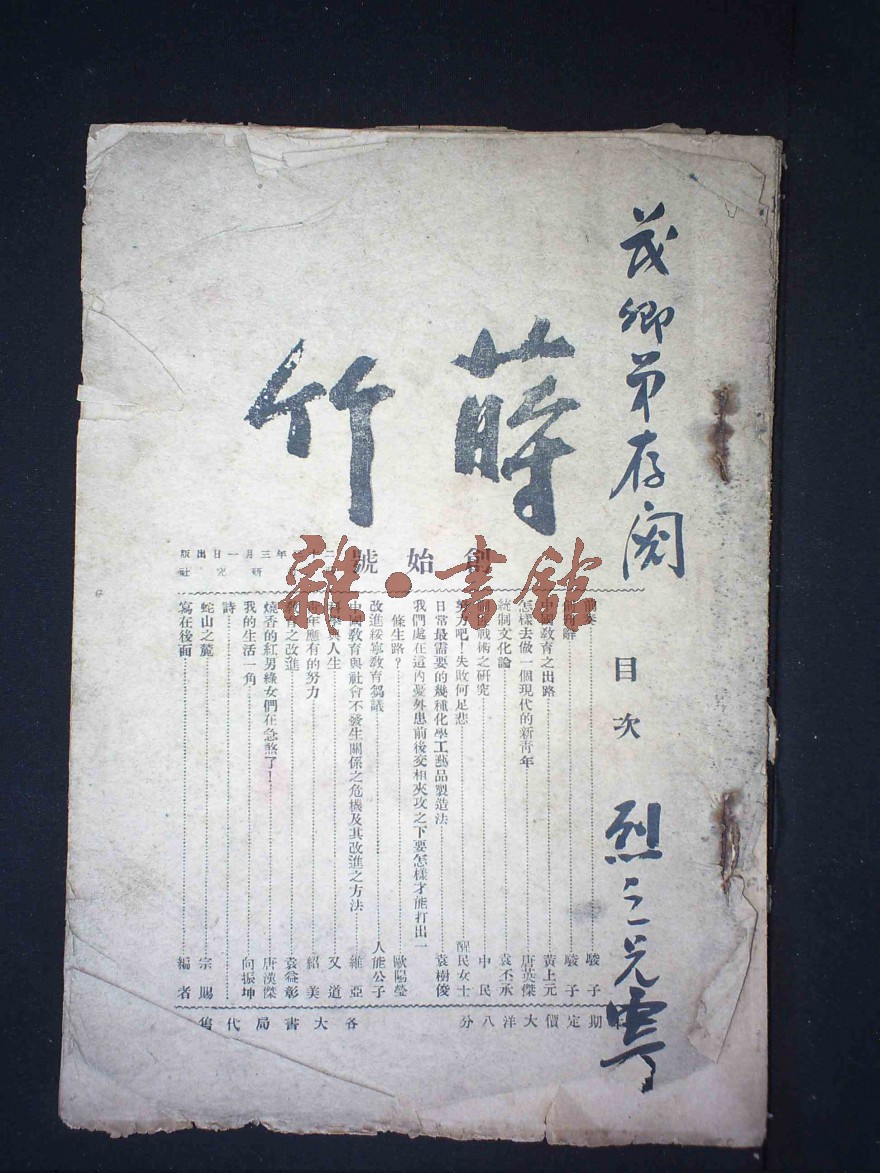 茂卿弟存閱
烈之兄
蒔竹
創始號
年三月一日出版
研究社
目次
駿子
駿子
中國教育之出路 黃上元
怎樣去做一個現代的新青年 唐英傑
統制文化論 袁丕承
戰術之研究 中民
努力吧!失敗何足悲 醒民女士
日常最需要的幾種化學工藝品製造法 袁樹俊
我們處在這內憂外患前後交相夾攻之下要怎樣才能打出一
條生路? 歐陽瑩
改進綏寧教育芻議 人能公子
中國教育與社會不發生關係之危機及其改進之方法 維亞
科學與人生 又道
青年應有的努力 紹美
教育之改進 袁益彰
燒香的紅男綠女們在急煞了! 唐漢傑
我的生活一角 向振坤
詩
蛇山之麓 宗賜
寫在後面 編者
期定價大洋八分
各大書局代售
雜·書館